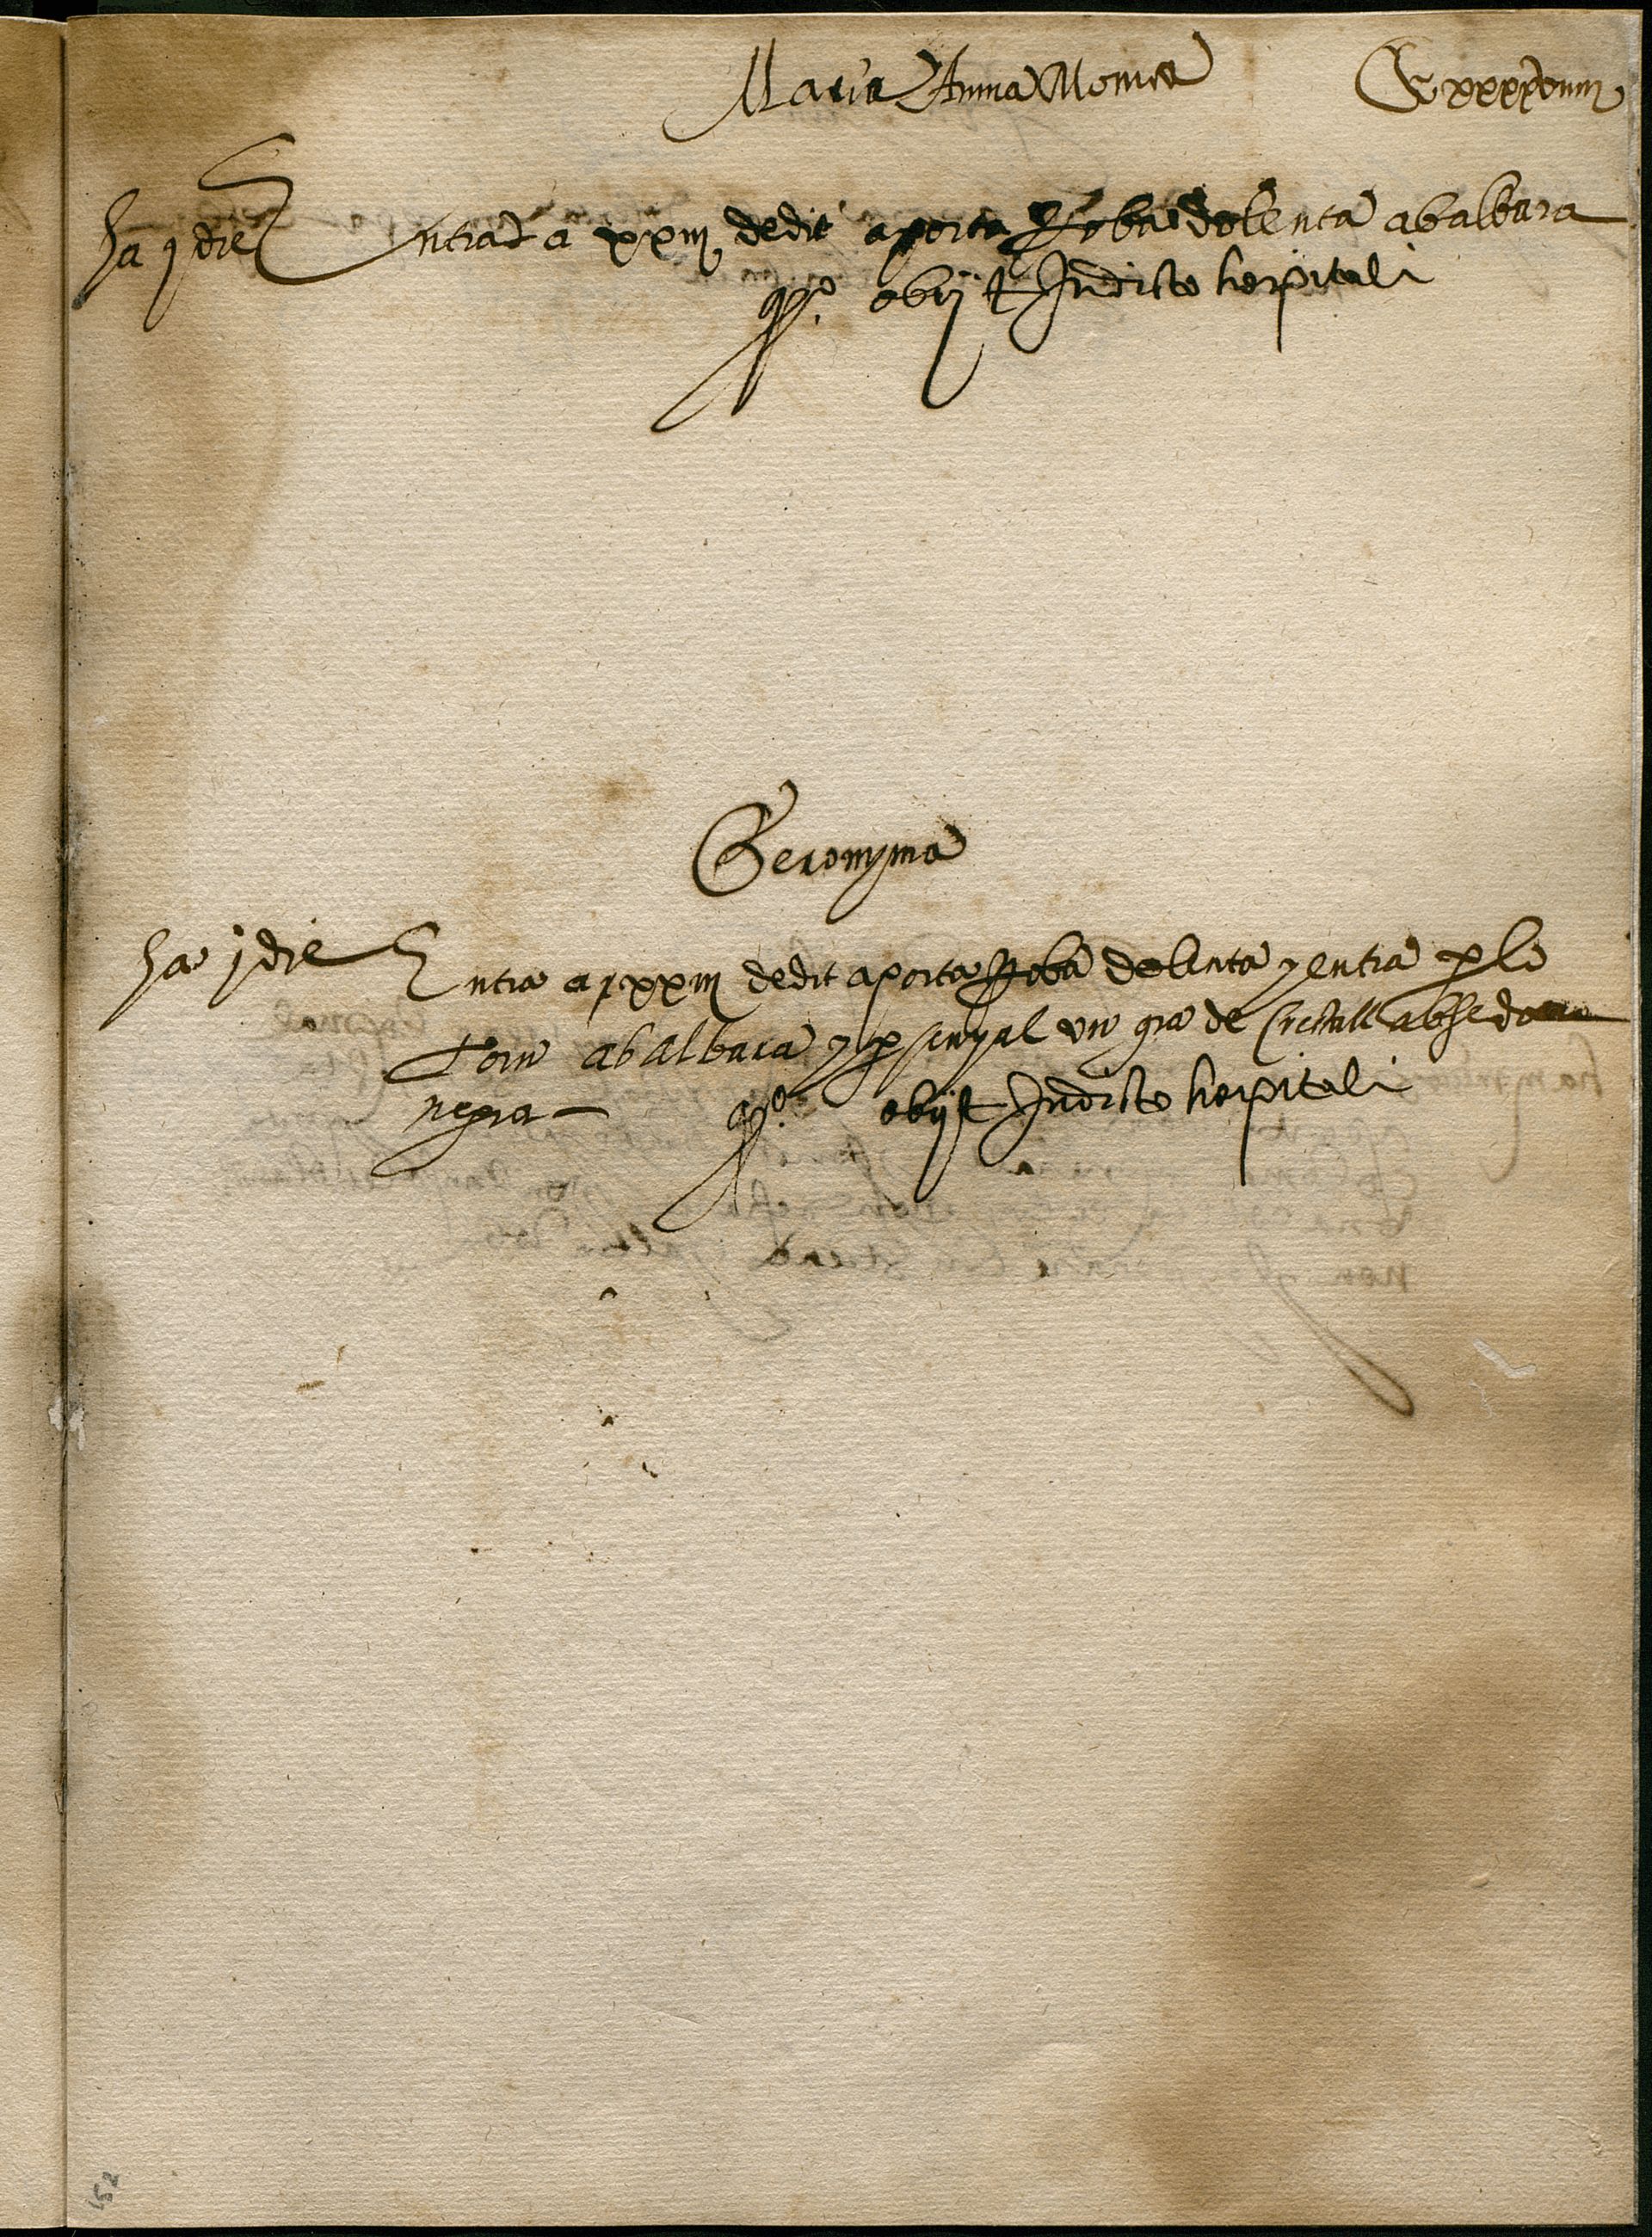 Maria Anna Monica
ha j die Entra a xxiij dedit aporta Roba dolenta ab albara
obijt In dicto hospitali
Geronyma
ha j die Entra a xxiij dedit aporta Roba dolenta y entra p lo
torn ab albara y p senyal vn gra de Crestall ab seda
negra
obijt In dicto hospitali
152